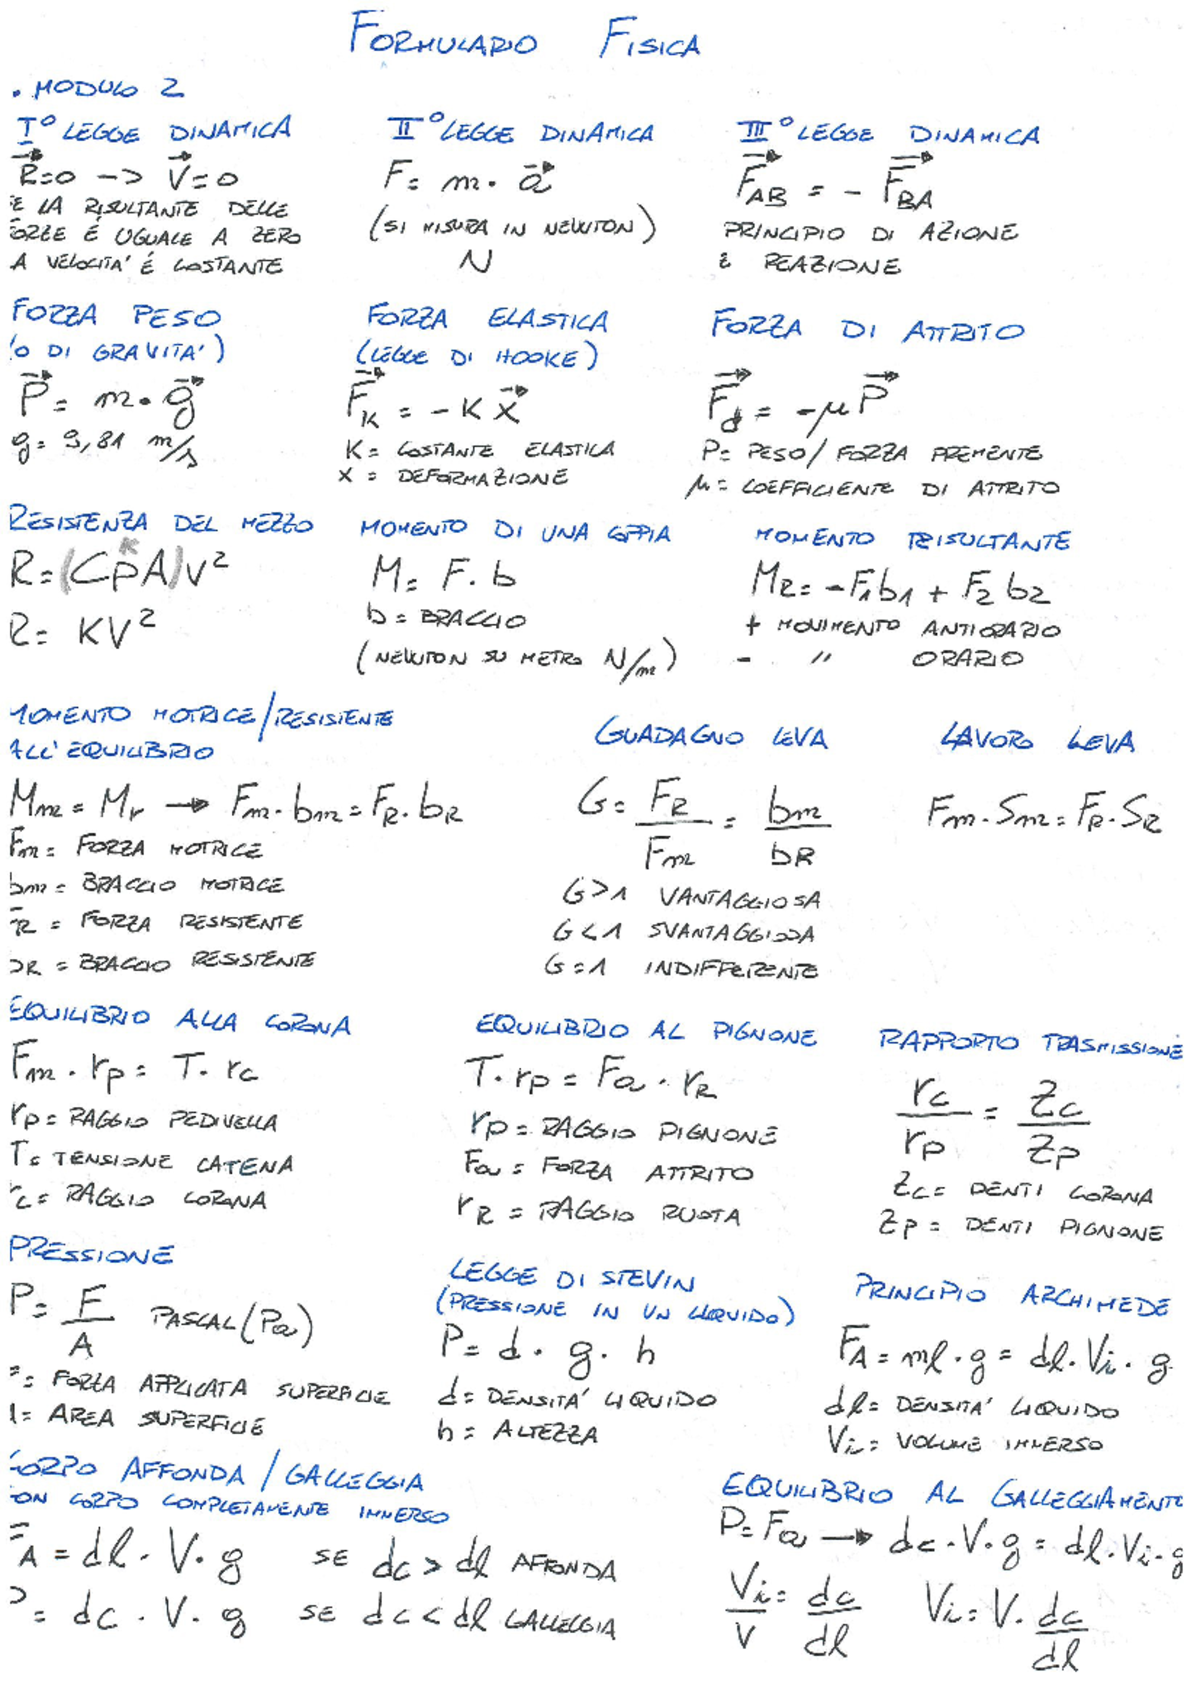 FORMULARIO FISICA
• MODULO 2
I° LEGGE DINAMICA
R=0 -> V=0
E LA RISULTANTE DELLE
ORZE É UGUALE A ZERO
A VELOCITA' É COSTANTE
II° LEGGE DINAMICA
F= m · a
(SI MISURA IN NEWTON)
N
III° LEGGE DINAMICA
F_AB = - F_BA
PRINCIPIO DI AZIONE
E REAZIONE
FORZA PESO
(O DI GRAVITA')
P = m · g
g= 9,81 m/s
FORZA ELASTICA
(LEGGE DI HOOKE)
F_K = - K x
K = COSTANTE ELASTICA
X = DEFORMAZIONE
FORZA DI ATTRITO
F_d = -μ P
P= PESO/FORZA PREMENTE
μ = COEFFICIENTE DI ATTRITO
RESISTENZA DEL MEZZO
K
R= (CρA)V²
R= KV²
MOMENTO DI UNA COPPIA
M= F · b
b = BRACCIO
(NEWTON SU METRO N/m)
MOMENTO RISULTANTE
MR= -F1b1 + F2 b2
+ MOVIMENTO ANTIORARIO
- " ORARIO
MOMENTO MOTRICE/RESISTENTE
ALL'EQUILIBRIO
Mm = Mr → Fm · bm = FR · bR
Fm = FORZA MOTRICE
bm = BRACCIO MOTRICE
FR = FORZA RESISTENTE
bR = BRACCIO RESISTENTE
GUADAGNO LEVA
G= FR/Fm = bm/bR
G>1 VANTAGGIOSA
G<1 SVANTAGGIOSA
G=1 INDIFFERENTE
LAVORO LEVA
Fm · Sm = FR · SR
EQUILIBRIO ALLA CORONA
Fm · rp = T · rc
rp = RAGGIO PEDIVELLA
T= TENSIONE CATENA
rc = RAGGIO CORONA
EQUILIBRIO AL PIGNONE
T · rp = Fa · rR
rp = RAGGIO PIGNONE
Fa = FORZA ATTRITO
rR = RAGGIO RUOTA
RAPPORTO TRASMISSIONE
rc/rp = Zc/Zp
Zc = DENTI CORONA
Zp = DENTI PIGNONE
PRESSIONE
P= F/A PASCAL (Pa)
F= FORZA APPLICATA SUPERFICIE
A= AREA SUPERFICIE
LEGGE DI STEVIN
(PRESSIONE IN UN LIQUIDO)
P= d · g · h
d = DENSITA' LIQUIDO
h = ALTEZZA
PRINCIPIO ARCHIMEDE
FA = ml · g = dl · Vi · g
dl = DENSITA' LIQUIDO
Vi = VOLUME IMMERSO
CORPO AFFONDA / GALLEGGIA
CON CORPO COMPLETAMENTE IMMERSO
FA = dl · V · g SE dc > dl AFFONDA
P = dc · V · g SE dc < dl GALLEGGIA
EQUILIBRIO AL GALLEGGIAMENTO
P= Fa → dc · V · g = dl · Vi · g
Vi/V = dc/dl Vi = V · dc/dl